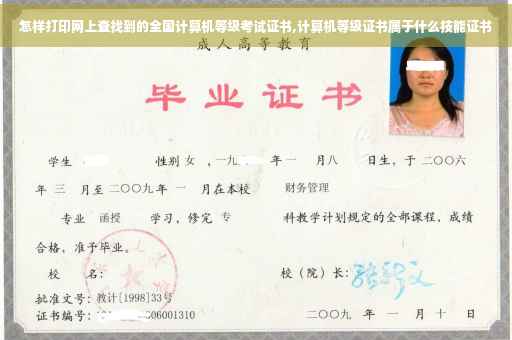 怎样打印网上查找到的全国计算机等级考试证书,计算机等级证书属于什么技能证书
成人高等教育
毕业证书
学生 性别 女 ，一九 年 一 月八 日生，于 二〇〇六
年 三 月至 二〇〇九 年 一 月在本校 财务管理
专业 函授 学习，修完 专 科教学计划规定的全部课程，成绩
合格，准予毕业。
校 名： 校（院）长：
批准文号：教计[1998]33号
证书编号： 06001310 二〇〇九 年 一 月 十 日